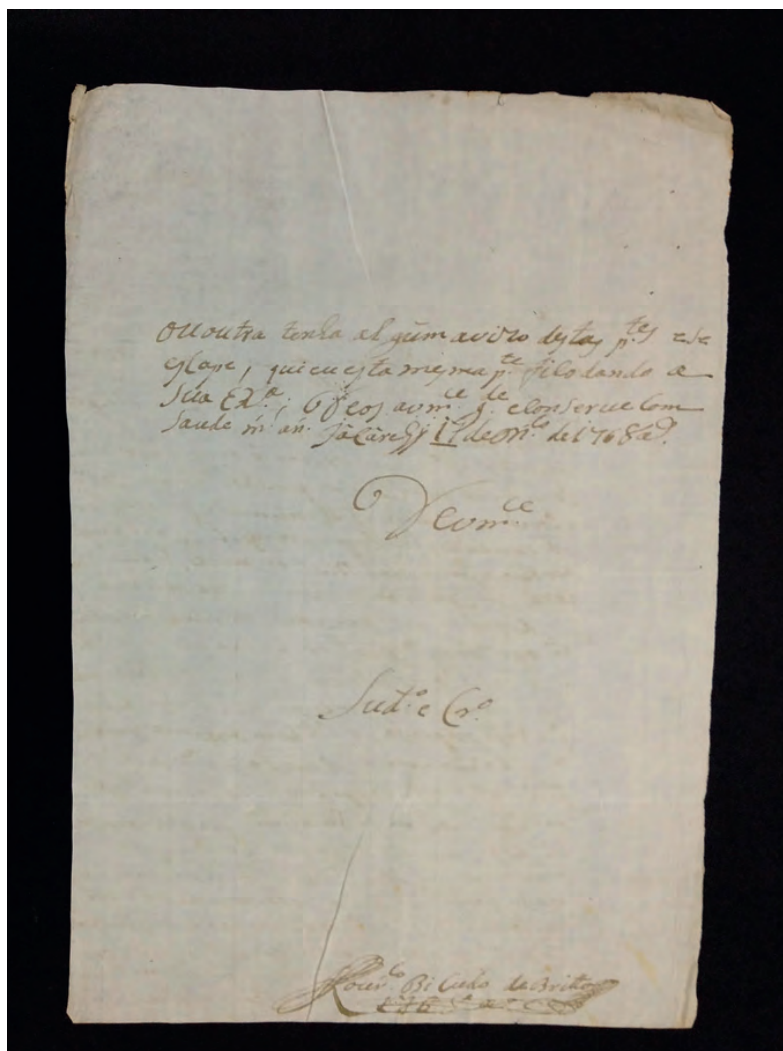 ou outra tenha algũm avizo destas p.tes e de
escape, que eu esta mesma p.te fico dando a
Sua Ex.a; D.s a vm.ce g.de e conserve com
Saude m. an. Jacarehy 17 de de 1768 a.
De vm.ce
Sud.o e Cr.o
Lour.co Bicudo de Britto